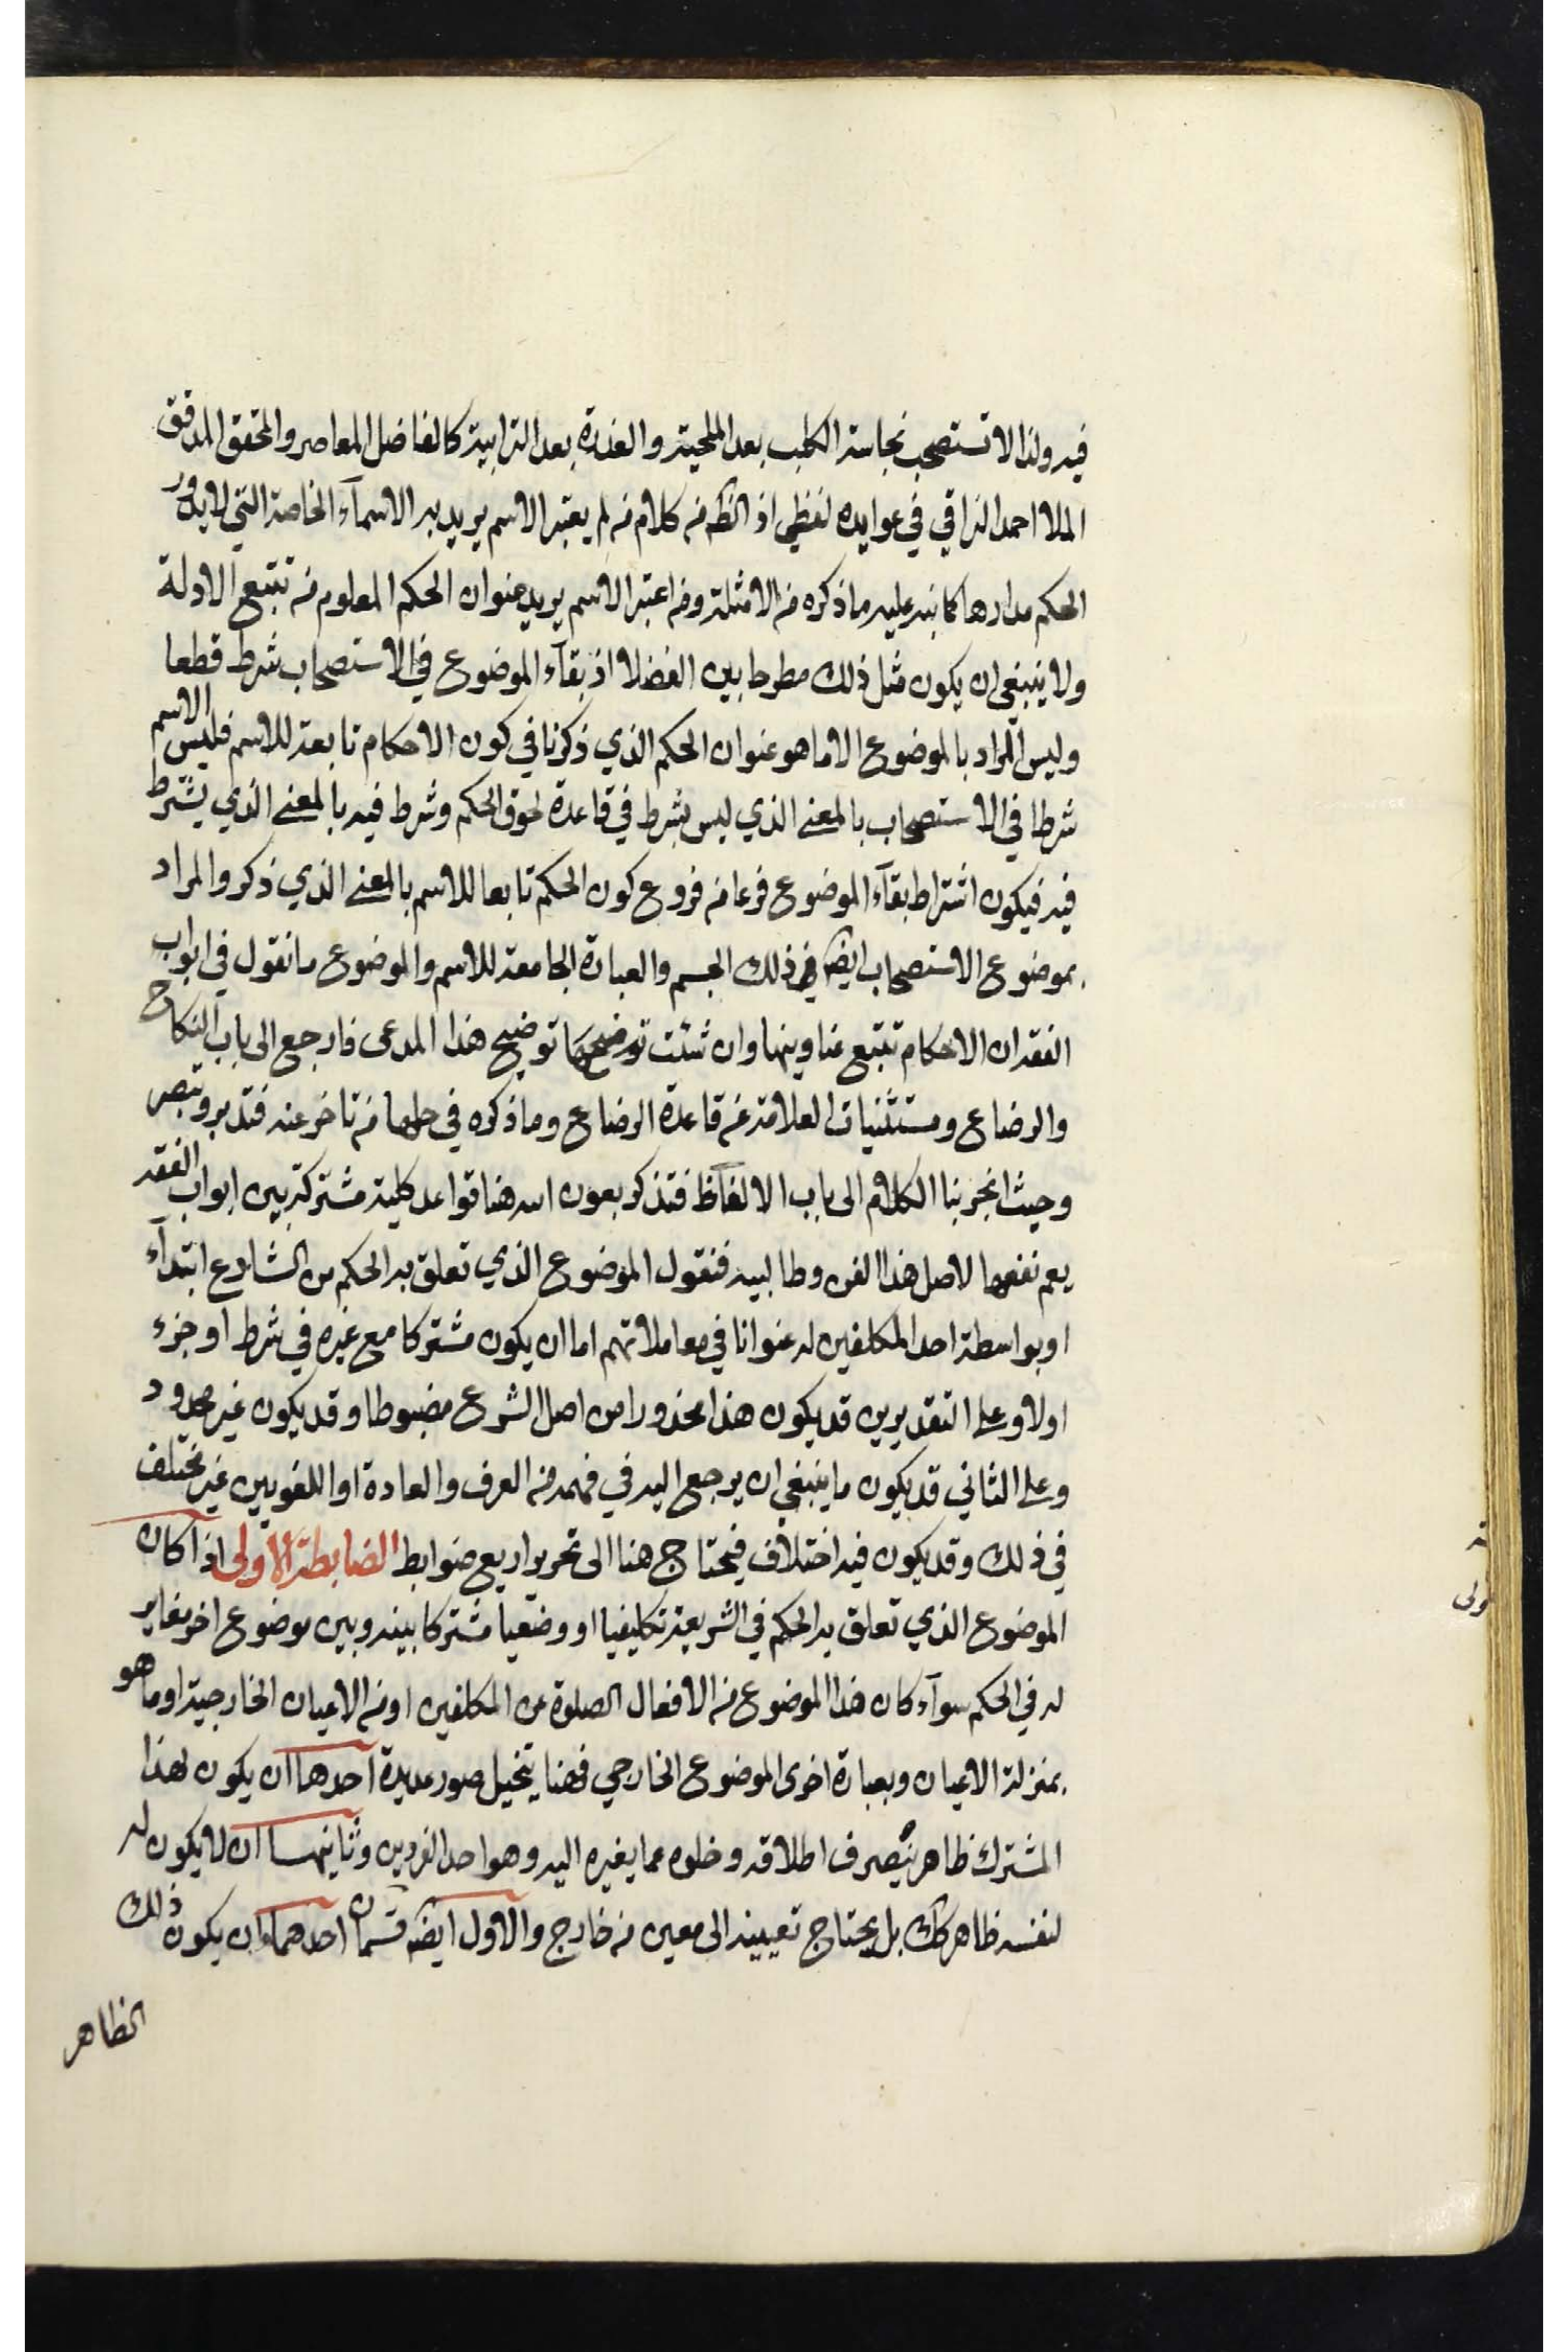 فيه ولذا لا تستصحب نجاسة الكلب بعد الملحية والعذرة بعد الترابية كالفاضل المعاصر والمحقق المدقق
الملا احمد النراقي في عوايده لفظي اذ الظ من كلام من لم يعتبر الاسم يريد به الاسمآء الخاصة التي لا يدور
الحكم مدارها كما نبه عليه ما ذكره من الامثلة ومن اعتبر الاسم يريد عنوان الحكم المعلوم من تتبع الادلة
ولا ينبغي ان يكون مثل ذلك مطرحا بين الفضلا اذ بقآء الموضوع في الاستصحاب شرط قطعا
وليس المراد بالموضوع الا ما هو عنوان الحكم الذي ذكرنا في كون الاحكام تابعة للاسم فليس الاسم
شرطا في الاستصحاب بالمعنى الذي ليس بشرط في قاعدة لحوق الحكم وشرط فيه بالمعنى الذي يشترط
فيه فيكون اشتراط بقآء الموضوع فرعا من فروع كون الحكم تابعا للاسم بالمعنى الذي ذكر والمراد
بموضوع الاستصحاب ايض في ذلك الجسم والعبارة الجامعة للاسم والموضوع ما نقول في ابواب
الفقه ان الاحكام تتبع عناوينها وان شئت توضيح هذا المدعى فارجع الى باب النكاح
والرضاع ومستثنيات العلامة من قاعدة الرضاع وما ذكره في حلها من تاخر عنه فتدبر وتبصر
وحيث انجر بنا الكلام الى باب الالفاظ فتذكر بعون الله هنا قواعد كلية مشتركة بين ابواب الفقه
يعم نفعها لاصل هذا الفن وطالبيه فنقول الموضوع الذي تعلق به الحكم من الشارع ابتدآء
او بواسطة احد المكلفين له عنوانا في معاملاتهم اما ان يكون مشتركا مع غيره في شرط او جزء
اولا وعلى التقديرين قد يكون هذا محدورا من اصل الشرع مضبوطا وقد يكون غير محدود
وعلى الثاني قد يكون ما ينبغي ان يرجع اليه في فهمه من العرف والعادة او اللغويين غير مختلف
في ذلك وقد يكون فيه اختلاف فيحتاج هنا الى تحرير اربع ضوابط الضابطة الاولى اذا كان
الموضوع الذي تعلق به الحكم في الشريعة تكليفيا او وضعيا مشتركا بينه وبين موضوع اخر مغاير
له في الحكم سوآء كان هذا الموضوع من الافعال الصلوة عن المكلفين او من الاعيان الخارجية او ما هو
بمنزلة الاعيان وبعبارة اخرى الموضوع الخارجي فهنا يتخيل صور عديدة احدها ان يكون لهذا
المشترك ظاهر ينصرف اطلاقه وخلوه عما يغيره اليه وهو احد الفردين وثانيهما ان لا يكون له
لنفسه ظاهر كك بل يحتاج تعيينه الى معين من خارج والاول ايض قسمان احدهما ان يكون ذلك
الظاهر
ولى